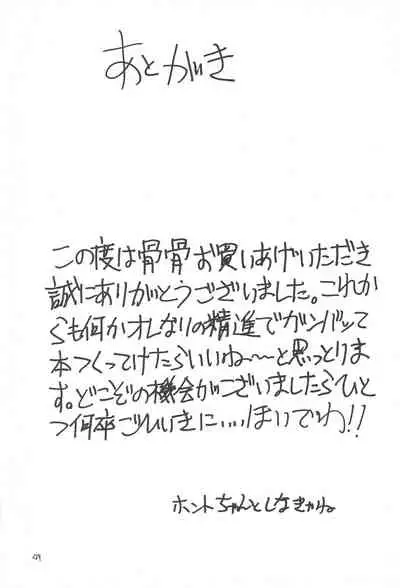 あとがき
この度は骨骨お買いあげいただき
誠にありがとうございました。これか
らも何かオレなりの精進でガンバッて
本つくってけたらいいね〜〜と思っとりま
す。どこぞの機会がございましたらひと
つ何卒ごひいきに...ほいでわ!!
ホントちゃんとしなきゃね
49